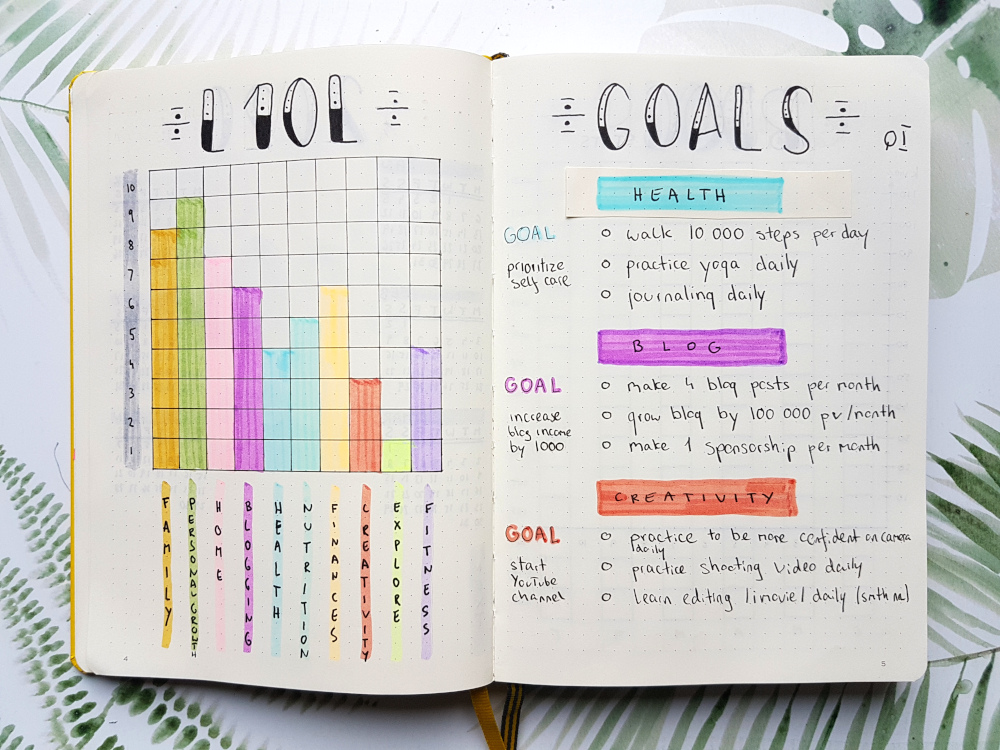 L10L
10
9
8
7
6
5
4
3
2
1
FAMILY
PERSONAL GROWTH
HOME
BLOGGING
HEALTH
NUTRITION
FINANCES
CREATIVITY
EXPLORE
FITNESS
4
GOALS
Q1
HEALTH
GOAL
prioritize
self care
o walk 10 000 steps per day
o practice yoga daily
o journaling daily
BLOG
GOAL
increase
blog income
by 1000
o make 4 blog posts per month
o grow blog by 100 000 pv/month
o make 1 sponsorship per month
CREATIVITY
GOAL
start
YouTube
channel
o practice to be more confident on camera
daily
o practice shooting video daily
o learn editing /imovie/ daily (smth
5